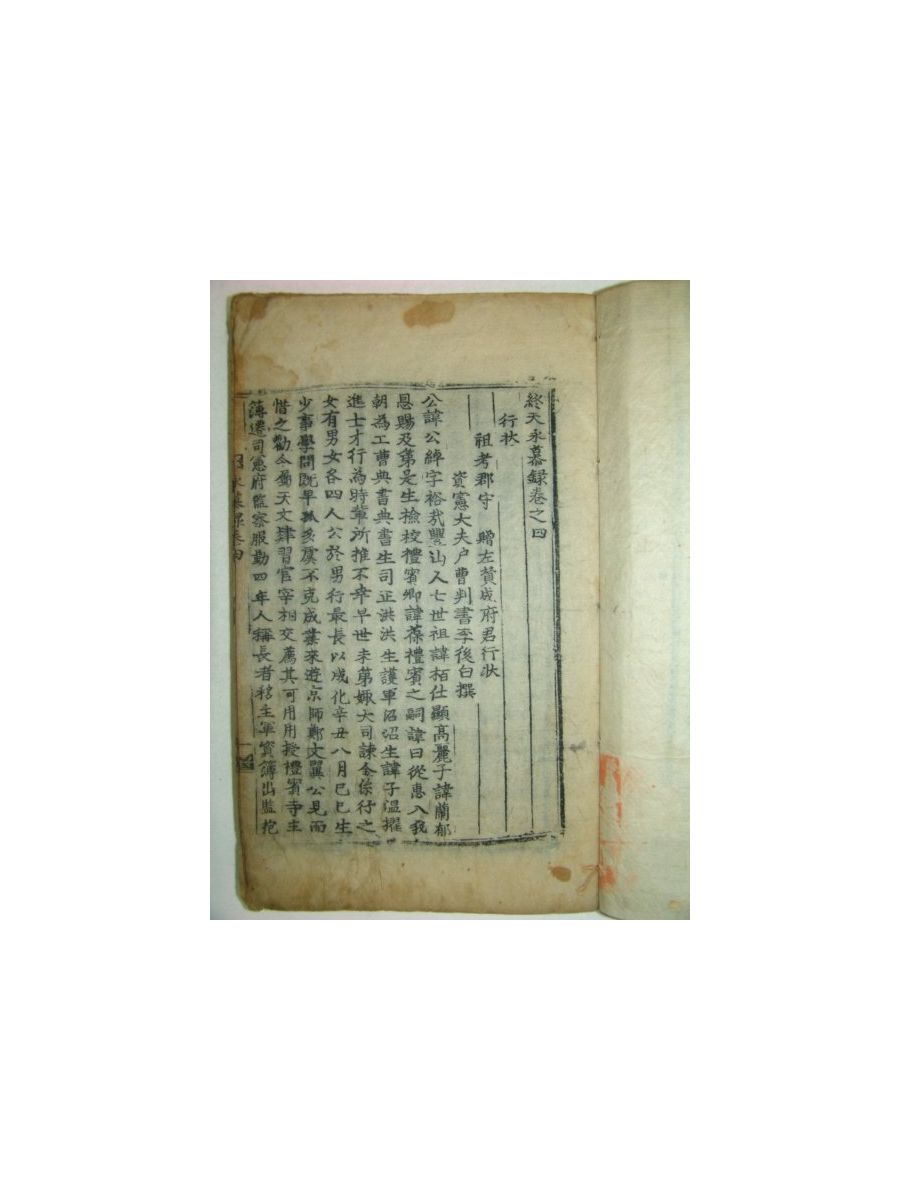 終天永慕錄卷之四
行狀
祖考郡守 贈左贊成府君行狀
資憲大夫户曹判書李後白撰
公諱公綽字裕哉豐山人七世祖諱栢仕顯高麗子諱蘭郁
恩賜及第是生檢校禮賓卿諱葆禮賓之嗣諱曰從惠入我
朝為工曹典書典書生司正洪洪生護軍沼沼生諱子溫擢
進士才行為時輩所推不幸早世未第娵大司諫金係行之
女有男女各四人公於男行最長以成化辛丑八月己巳生
少事學問既早孤多虞不克成業來遊京師鄭文翼公見而
惜之勸令屬天文肄習官宰相交薦其可用用授禮賓寺主
簿遷司憲府監察服勤四年人稱長者移主軍資簿出監
永慕錄卷四